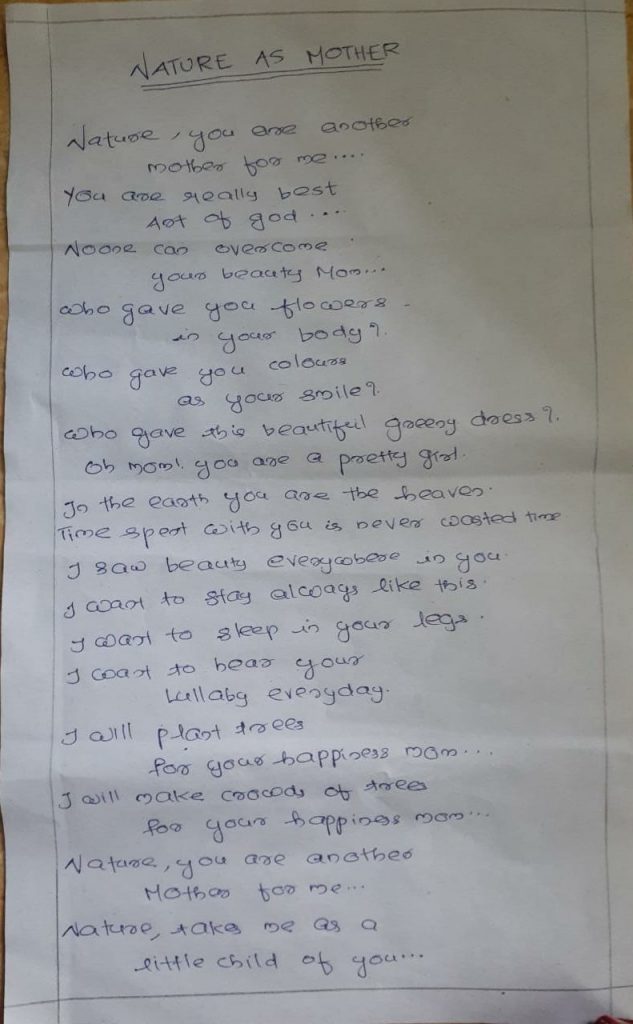 NATURE AS MOTHER
Nature, you are another
mother for me....
You are really best
Art of god....
Noone can overcome
your beauty Mom...
Who gave you flowers
in your body?
Who gave you colours
as your smile?
Who gave this beautiful greeny dress?
Oh mom! you are a pretty girl.
In the earth you are the heaven.
Time spent with you is never wasted time
I saw beauty everywhere in you.
I want to stay always like this.
I want to sleep in your legs.
I want to hear your
lullaby everyday.
I will plant trees
for your happiness mom...
I will make crowds of trees
for your happiness mom...
Nature, you are another
Mother for me...
Nature, take me as a
little child of you...